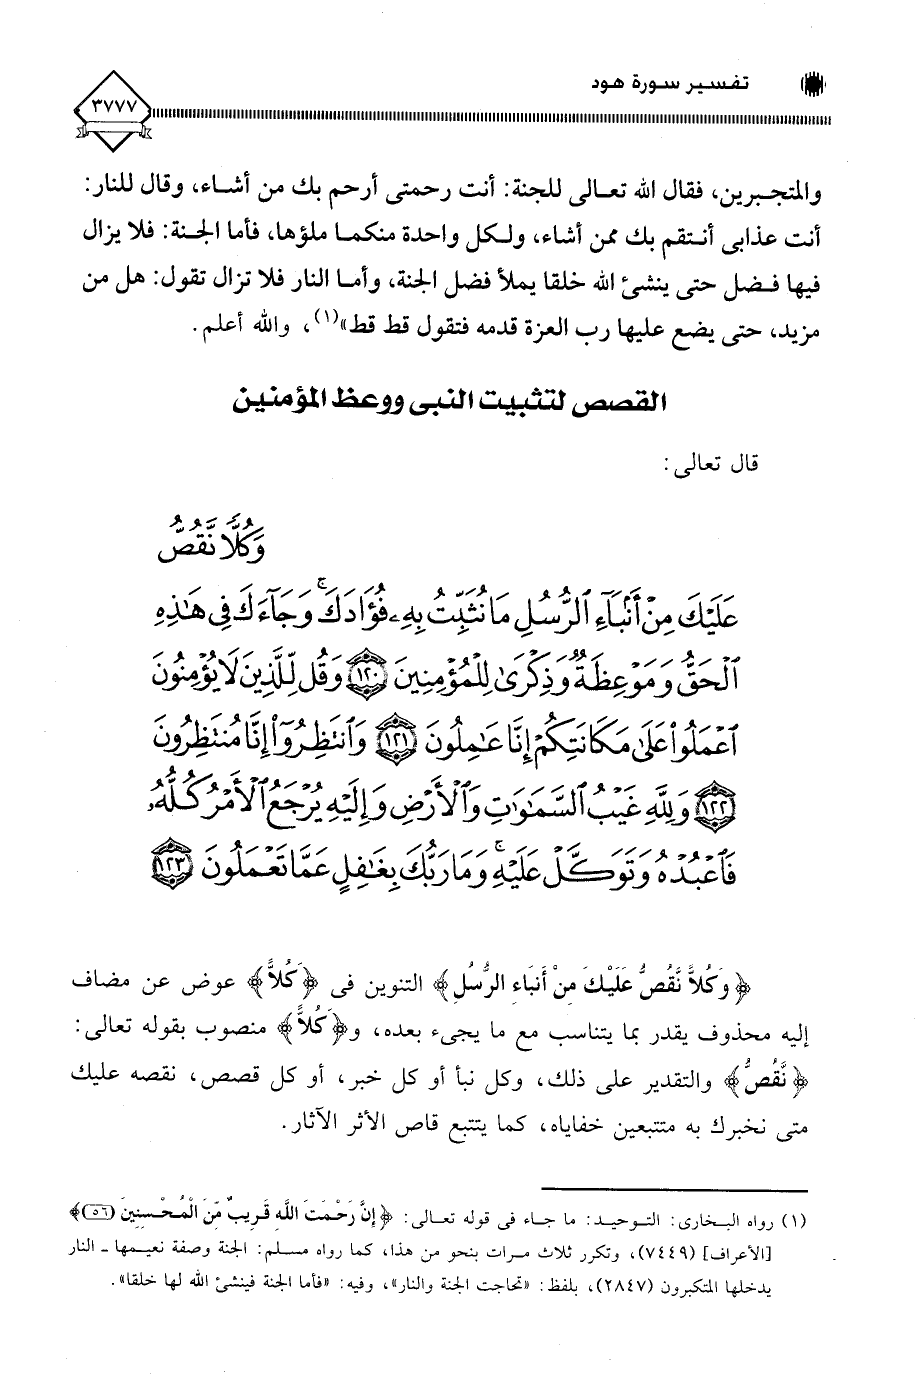 تفسير سورة هود
٣٧٧٧
والمتجبرين، فقال الله تعالى للجنة: أنت رحمتى أرحم بك من أشاء، وقال للنار:
أنت عذابى أنتقم بك ممن أشاء، ولكل واحدة منكما ملؤها، فأما الجنة: فلا يزال
فيها فضل حتى ينشئ الله خلقا يملأ فضل الجنة، وأما النار فلا تزال تقول: هل من
مزيد، حتى يضع عليها رب العزة قدمه فتقول قط قط»(١)، والله أعلم.
القصص لتثبيت النبى ووعظ المؤمنين
قال تعالى:
وَكُلًّا نَّقُصُّ
عَلَيْكَ مِنْ أَنۢبَآءِ ٱلرُّسُلِ مَا نُثَبِّتُ بِهِۦ فُؤَادَكَ ۚ وَجَآءَكَ فِى هَٰذِهِ
ٱلْحَقُّ وَمَوْعِظَةٌ وَذِكْرَىٰ لِلْمُؤْمِنِينَ ١٢٠ وَقُل لِّلَّذِينَ لَا يُؤْمِنُونَ
ٱعْمَلُوا۟ عَلَىٰ مَكَانَتِكُمْ إِنَّا عَٰمِلُونَ ١٢١ وَٱنتَظِرُوٓا۟ إِنَّا مُنتَظِرُونَ
١٢٢ وَلِلَّهِ غَيْبُ ٱلسَّمَٰوَٰتِ وَٱلْأَرْضِ وَإِلَيْهِ يُرْجَعُ ٱلْأَمْرُ كُلُّهُۥ
فَٱعْبُدْهُ وَتَوَكَّلْ عَلَيْهِ ۚ وَمَا رَبُّكَ بِغَٰفِلٍ عَمَّا تَعْمَلُونَ ١٢٣
﴿وَكُلاًّ نَّقُصُّ عَلَيْكَ مِنْ أَنبَاءِ الرُّسُلِ﴾ التنوين فى ﴿كُلاًّ﴾ عوض عن مضاف
إليه محذوف يقدر بما يتناسب مع ما يجىء بعده، و﴿كُلاًّ﴾ منصوب بقوله تعالى:
﴿نَّقُصُّ﴾ والتقدير على ذلك، وكل نبأ أو كل خبر، أو كل قصص، نقصه عليك
متى نخبرك به متتبعين خفاياه، كما يتتبع قاص الأثر الآثار.
(١) رواه البخارى: التوحيد: ما جاء فى قوله تعالى: ﴿إِنَّ رَحْمَتَ اللَّهِ قَرِيبٌ مِّنَ الْمُحْسِنِينَ (٥٦)﴾
[الأعراف] (٧٤٤٩)، وتكرر ثلاث مرات بنحو من هذا، كما رواه مسلم: الجنة وصفة نعيمها ـ النار
يدخلها المتكبرون (٢٨٤٧)، بلفظ: «تحاجت الجنة والنار»، وفيه: «فأما الجنة فينشئ الله لها خلقا».